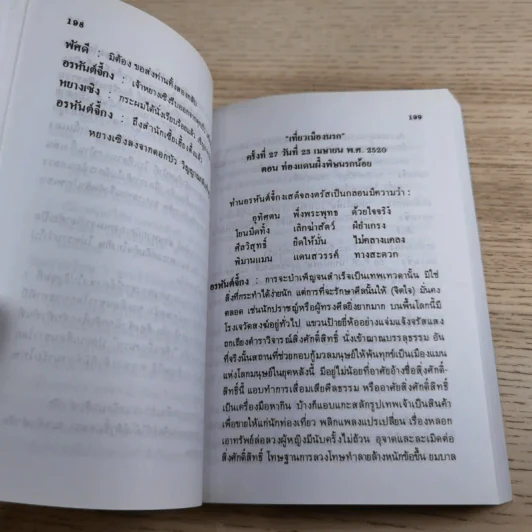 198
พัศดี : มิต้อง ขอส่งท่านทั้งสองกลับ
อรหันต์จี้กง : เจ้าหยางเซิงรีบออกเดินทาง
หยางเซิง : กระผมได้นั่งเรียบร้อยแล้ว
อรหันต์จี้กง : ถึงสำนักเซี้ยเฮี้ยงตึ๊งแล้ว
หยางเซิงลงจากดอกบัว วิญญาณ
199
"เที่ยวเมืองนรก"
ครั้งที่ 27 วันที่ 23 เมษายน พ.ศ. 2520
ตอน ท่องแดนผึ้งพิษนรกน้อย
ท่านอรหันต์จี้กงเสด็จลงตรัสเป็นกลอนมีความว่า :
อุทิศตน พึ่งพระพุทธ ด้วยใจจริง
โยนมีดทิ้ง เลิกฆ่าสัตว์ ฝู่ยำเกรง
ศีลวิสุทธิ์ ยึดให้มั่น ไม่คลางแคลง
พิมานแมน แดนสวรรค์ ทางสะดวก
อรหันต์จี้กง : การจะบำเพ็ญจนสำเร็จเป็นเทพเทวดานั้น มิใช่
สิ่งที่กระทำได้ง่ายนัก แต่การที่จะรักษาศีลนั้นให้ (จิตใจ) มั่นคง
ตลอด เช่นนักปราชญ์หรือผู้ทรงศีลยิ่งยากมาก บนพื้นโลกนี้มี
โรงเจวัดสงฆ์อยู่ทั่วไป แขวนป้ายยี่ห้ออย่างแจ่มแจ้งจรัสแสง
ถกเถียงตำราวิจารณ์สิ่งศักดิ์สิทธิ์ นั่งเข้าฌาณบรรลุธรรม อัน
ที่จริงนั้นสถานที่ช่วยกอบกู้มวลมนุษย์ให้พ้นทุกข์เป็นเมืองแมน
แห่งโลกมนุษย์ในยุคหลังนี้ มีอยู่ไม่น้อยที่อาศัยอ้างชื่อสิ่งศักดิ์-
สิทธิ์นี้ แอบทำการเสื่อมเสียศีลธรรม หรืออาศัยสิ่งศักดิ์สิทธิ์
เป็นเครื่องมือหากิน บ้างก็แอบแกะสลักรูปเทพเจ้าเป็นสินค้า
เพื่อขายให้แก่นักท่องเที่ยว พลิกแพลงแปรเปลี่ยน เรื่องหลอก
เอาทรัพย์ล่อลวงผู้หญิงมีนับครั้งไม่ถ้วน อุจาดและละเมิดต่อ
สิ่งศักดิ์สิทธิ์ โทษฐานการลวงโทษทำลายล้างหนักข้อขึ้น ยมบาล